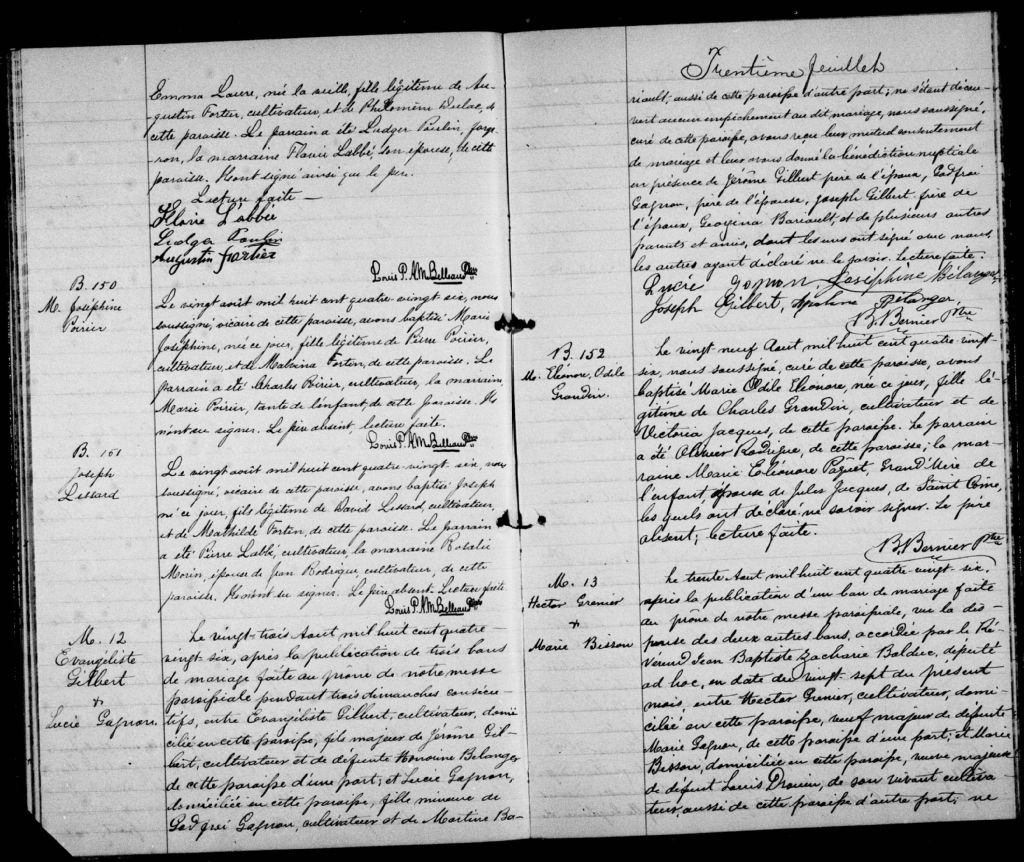 Emma Laure, né la veille, fille légitime de Au-
gustin Fortier, cultivateur, et de Philomène Dulac, de
cette paroisse. Le parrain a été Ludger Poulin, forge-
ron, la marraine Flavie Labbé, son épouse, de cette
paroisse. Il ont signé ainsi que le père.
Lecture faite —
Flavie Labbée
Ludga Poulin
Augustin fortier
Louis P. A. M. Belleau Ptre
B. 150
M. Joséphine
Poirier
Le vingt aout mil huit cent quatre-vingt six, nous
soussigné, vicaire de cette paroisse, avons baptisé Marie
Joséphine, née ce jour, fille légitime de Pierre Poirier,
cultivateur, et de Malvina Fortin, de cette paroisse. Le
parrain a été Charles Poirier, cultivateur, la marraine,
Marie Poirier, tante de l'enfant, de cette paroisse. Ils
n'ont su signer. Le père absent. Lecture faite.
Louis P. A. M. Belleau Ptre
B. 151
Joseph
Lessard
Le vingt août mil huit cent quatre-vingt six, nous
soussigné, vicaire de cette paroisse, avons baptisé Joseph
né ce jour, fils légitime de David Lessard, cultivateur,
et de Mathilde Fortin, de cette paroisse. Le parrain
a été Pierre Labbé, cultivateur, la marraine Rosalie
Morin, épouse de Jean Rodrigue, cultivateur, de cette
paroisse. Ils n'ont su signer. Le père absent. Lecture faite
Louis P. A. M. Belleau Ptre
M. 12
Evangéliste
Gilbert
+
Lucie Gagnon.
Le vingt-trois Aout mil huit cent quatre-
vingt six, après la publication de trois bans
de mariage faite au prône de notre messe
paroissiale pendant trois dimanches consécu-
tifs, entre Evangéliste Gilbert, cultivateur, domi-
cilié en cette paroisse, fils majeur de Jérôme Gil-
bert, cultivateur et de défunte Honorine Belanger
de cette paroisse d'une part; et Lucie Gagnon,
domiciliée en cette paroisse, fille mineure de
Godfroi Gagnon, cultivateur et de Martine Ba-
Trentième feuillet
riault, aussi de cette paroisse d'autre part; ne s'étant décou-
vert aucun empêchement au dit mariage, nous soussigné,
curé de cette paroisse, avons reçu leur mutuel consentement
de mariage et leur avons donné la bénédiction nuptiale
en présence de Jérôme Gilbert père de l'époux, Godfroi
Gagnon, père de l'épouse, Joseph Gilbert, frère de
l'époux, Georgina Bariault, et de plusieurs autres
parents et amis, dont les uns ont signé avec nous,
les autres ayant déclaré ne le savoir. Lecture faite.
Lucie Gagnon, Joséphine Bélanger
Joseph Gilbert, Bélanger,
B. Bernier Ptre
B. 152
M. Eléonore, Odile
Grondin.
Le vingt neuf Aout mil huit cent quatre-vingt-
six, nous soussigné, curé de cette paroisse, avons
baptisé Marie Odile Eléonore, née ce jour, fille lé-
gitime de Charles Grondin, cultivateur et de
Victoria Jacques, de cette paroisse. Le parrain
a été Olivier Rodrigue, de cette paroisse; la mar-
raine Marie Eléonore Paquet, Grand'Mère de
l'enfant, épouse de Jules Jacques, de Saint Côme,
les quels ont déclaré ne savoir signer. Le père
absent; lecture faite.
B. Bernier Ptre
M. 13
Hector Grenier
+
Marie Bisson
Le trente Aout mil huit cent quatre-vingt six,
après la publication d'un ban de mariage faite
au prône de notre messe paroissiale, vu la dis-
pense des deux autres bans, accordée par le Ré-
vérend Jean Baptiste Zacharie Bolduc, député
ad hoc, en date du vingt-sept du présent
mois, entre Hector Grenier, cultivateur, domi-
cilié en cette paroisse, veuf majeur de défunte
Marie Gagnon, de cette paroisse d'une part; et Marie
Bisson, domiciliée en cette paroisse, veuve majeure
de défunt Louis Drouin, de son vivant cultiva
teur, aussi de cette paroisse d'autre part; ne